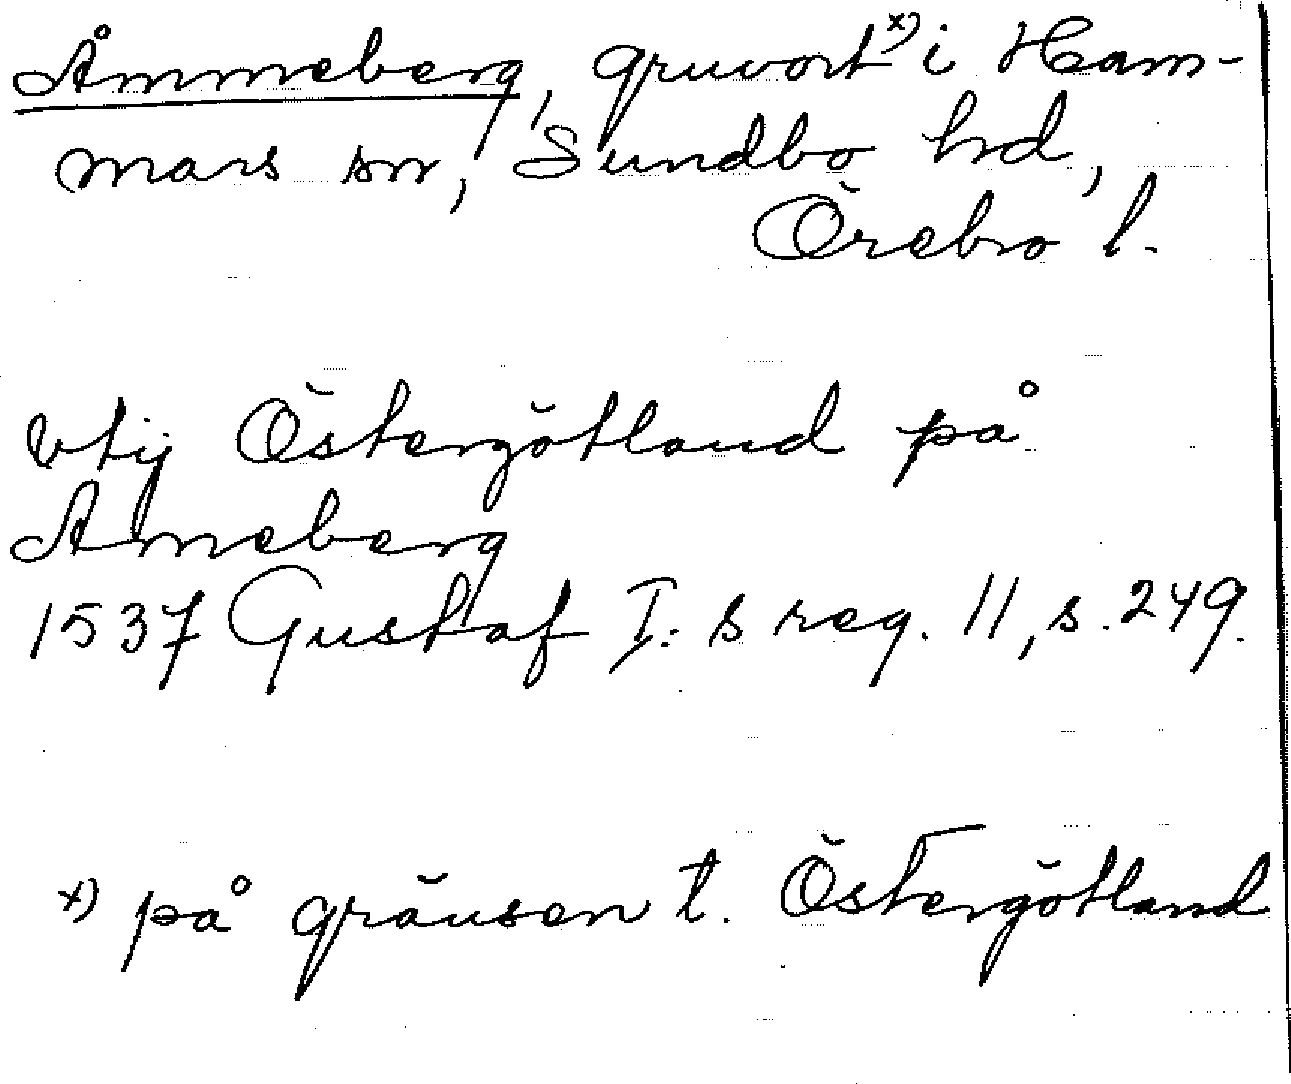 Åmmeberg, gruvort x) i Ham-
mars sn, Sundbo hd,
Örebro l.
vtij Östergötland på
Ameberg
1537 Gustaf I:s reg. 11, s. 249.
x) på gränsen t. Östergötland